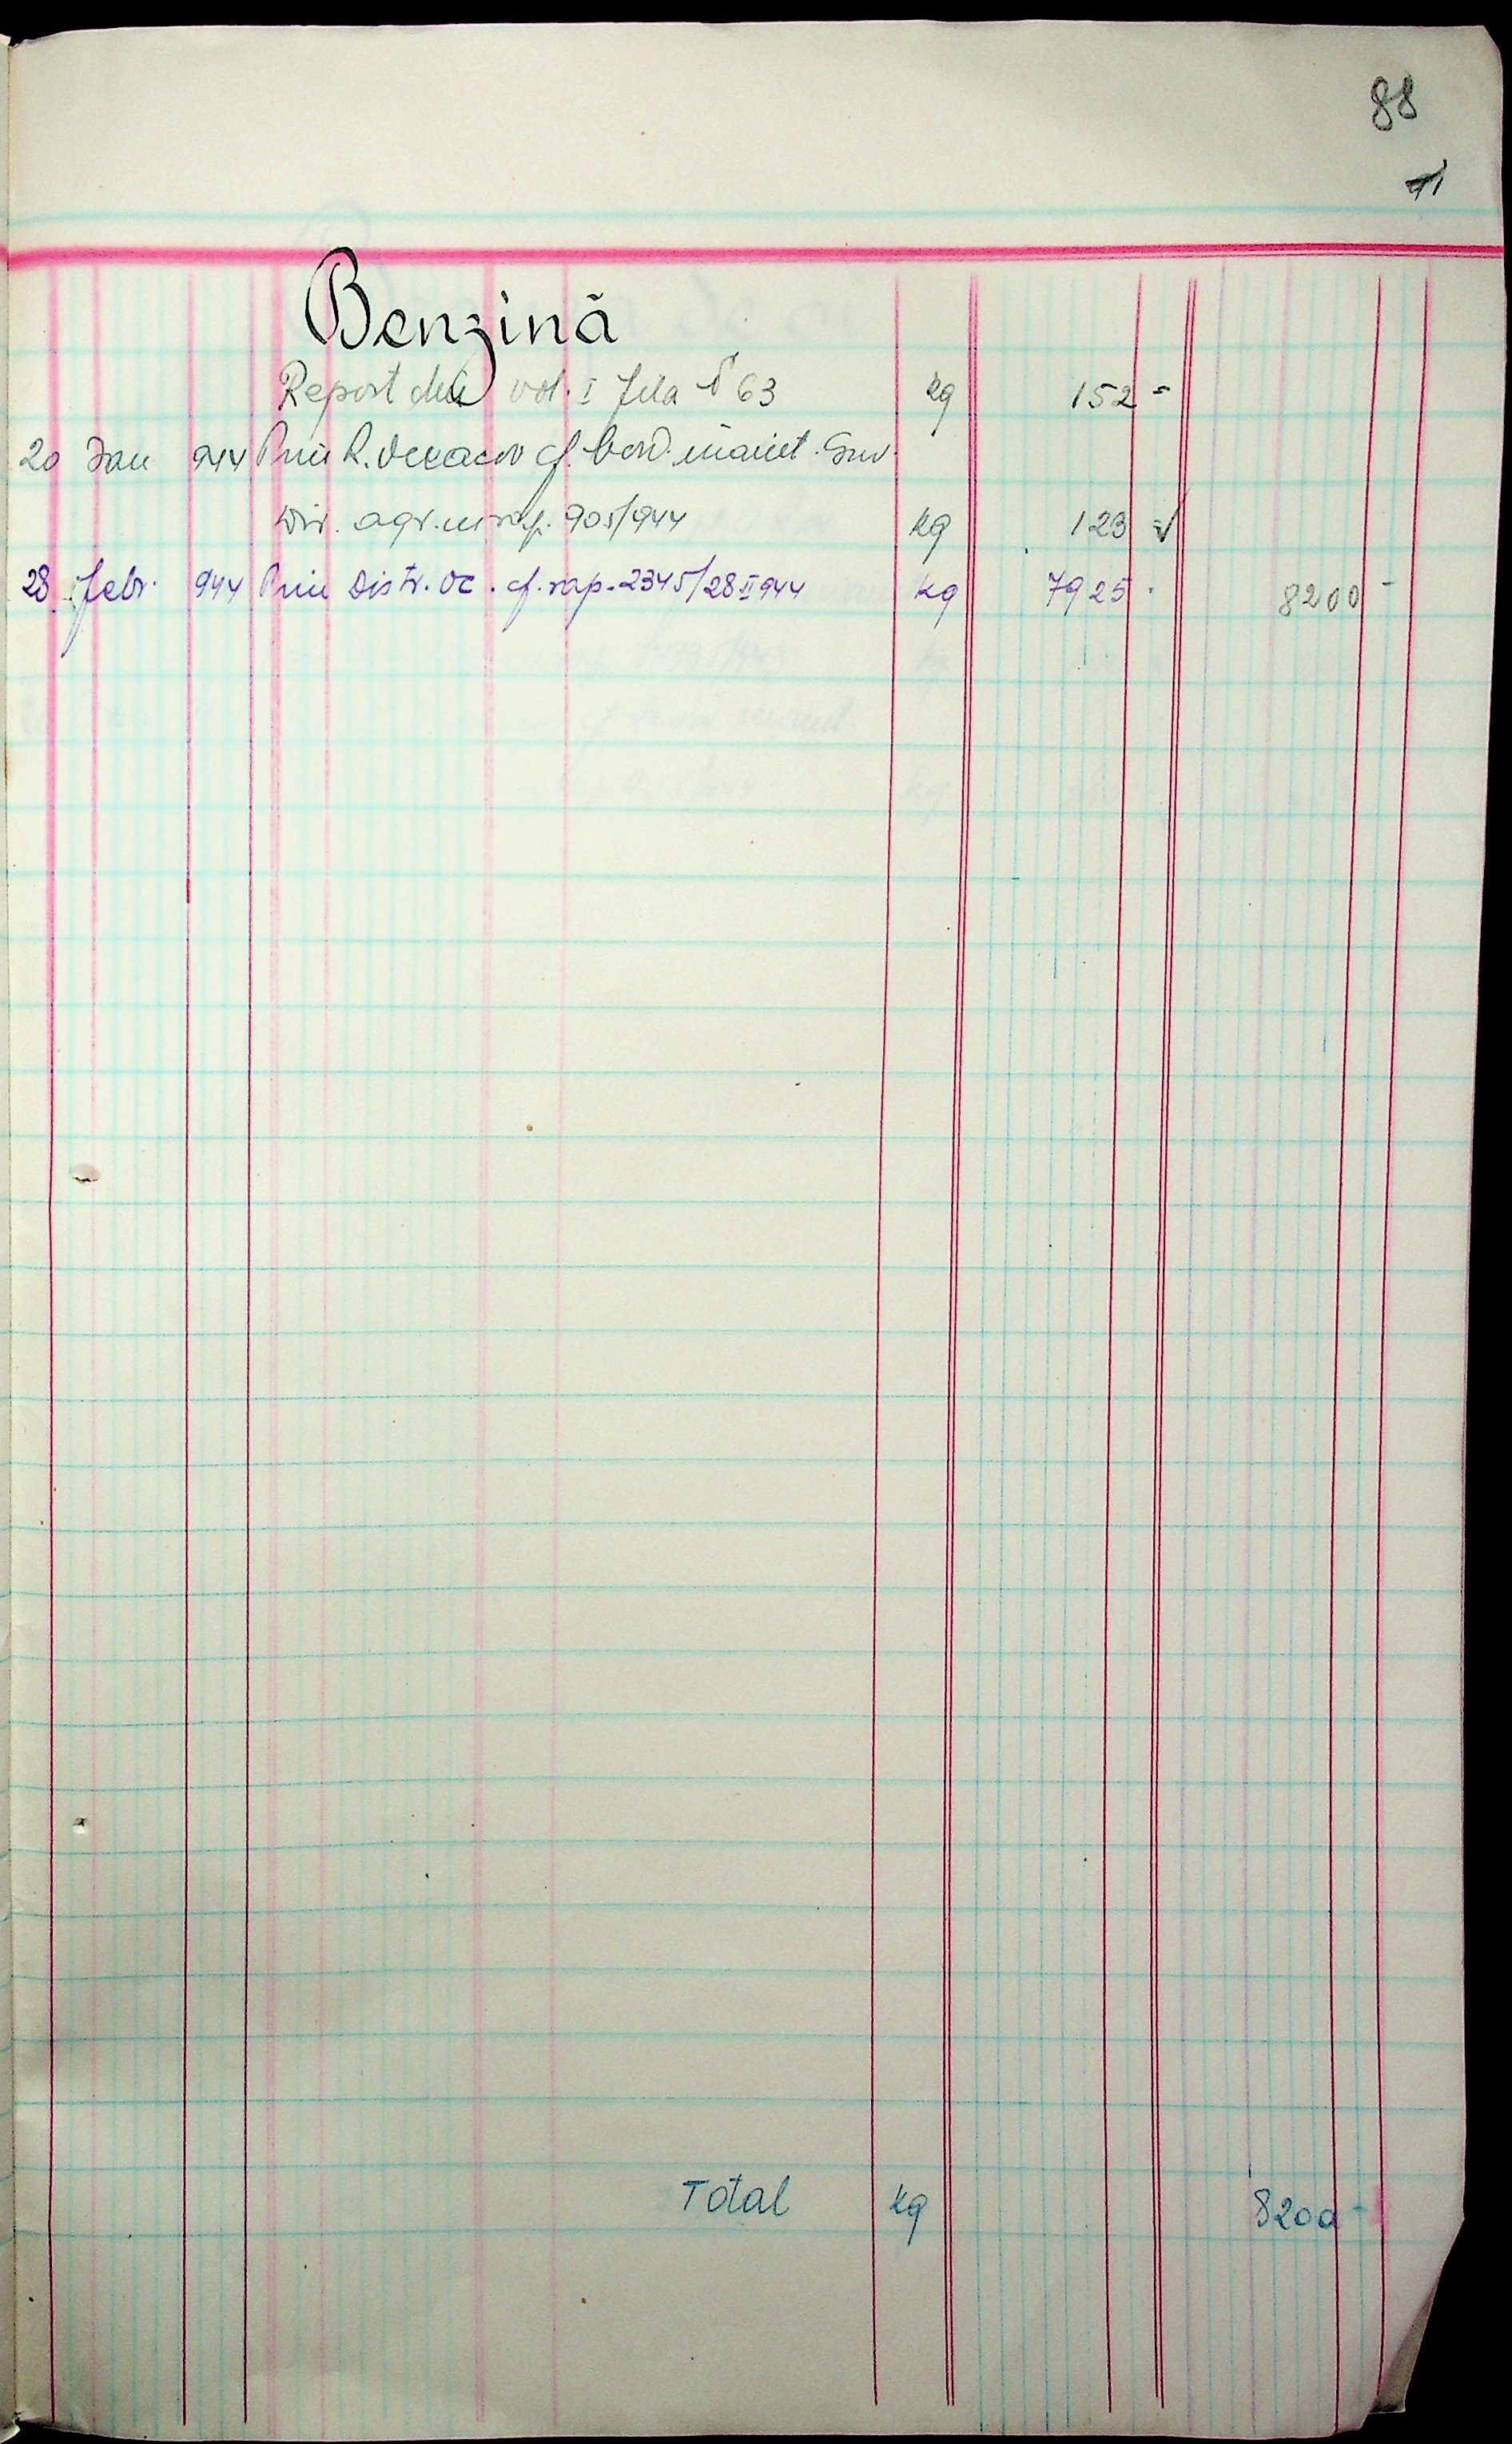 88
Benzină
Report din vol. I fila № 63 kg 152 -
20 Jan 944 Prin R. cf. bord. Guv.
Dir. agr. 905/944 kg 123 -
28 Febr. 944 Prin Distr. Oc. cf. rap. 2345/28 II 944 kg 7925 - 8200 -
Total kg 8200 -